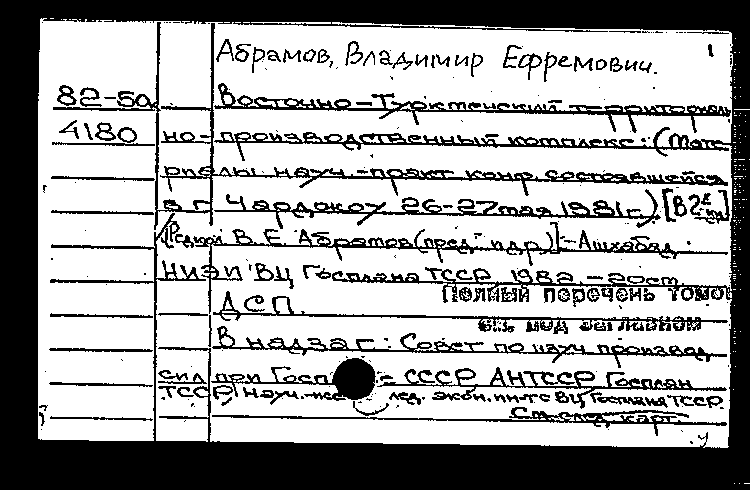 Абрамов, Владимир Ефремович. 1
82-50 Восточно-Туркменский территориаль
4180 но-производственный комплекс: (Мате
риалы науч.-практ. конф. состоявшейся
в г. Чарджоу 26-27 мая 1981 г.) [В 2х
[Редкол В.Е. Абрамов (пред.) и др.]-Ашхабад.
НИЭИ ВЦ Госплана ТССР 1982.-20см
ДСП. Полный перечень томо
см. под заглавном
В надзаг: Совет по изуч. производ
сил при Госп СССР, АН ТССР, Госплан
ТССР, Науч.- лед. экон. ин-т с ВЦ Госплана ТССР.
См. след. карт.